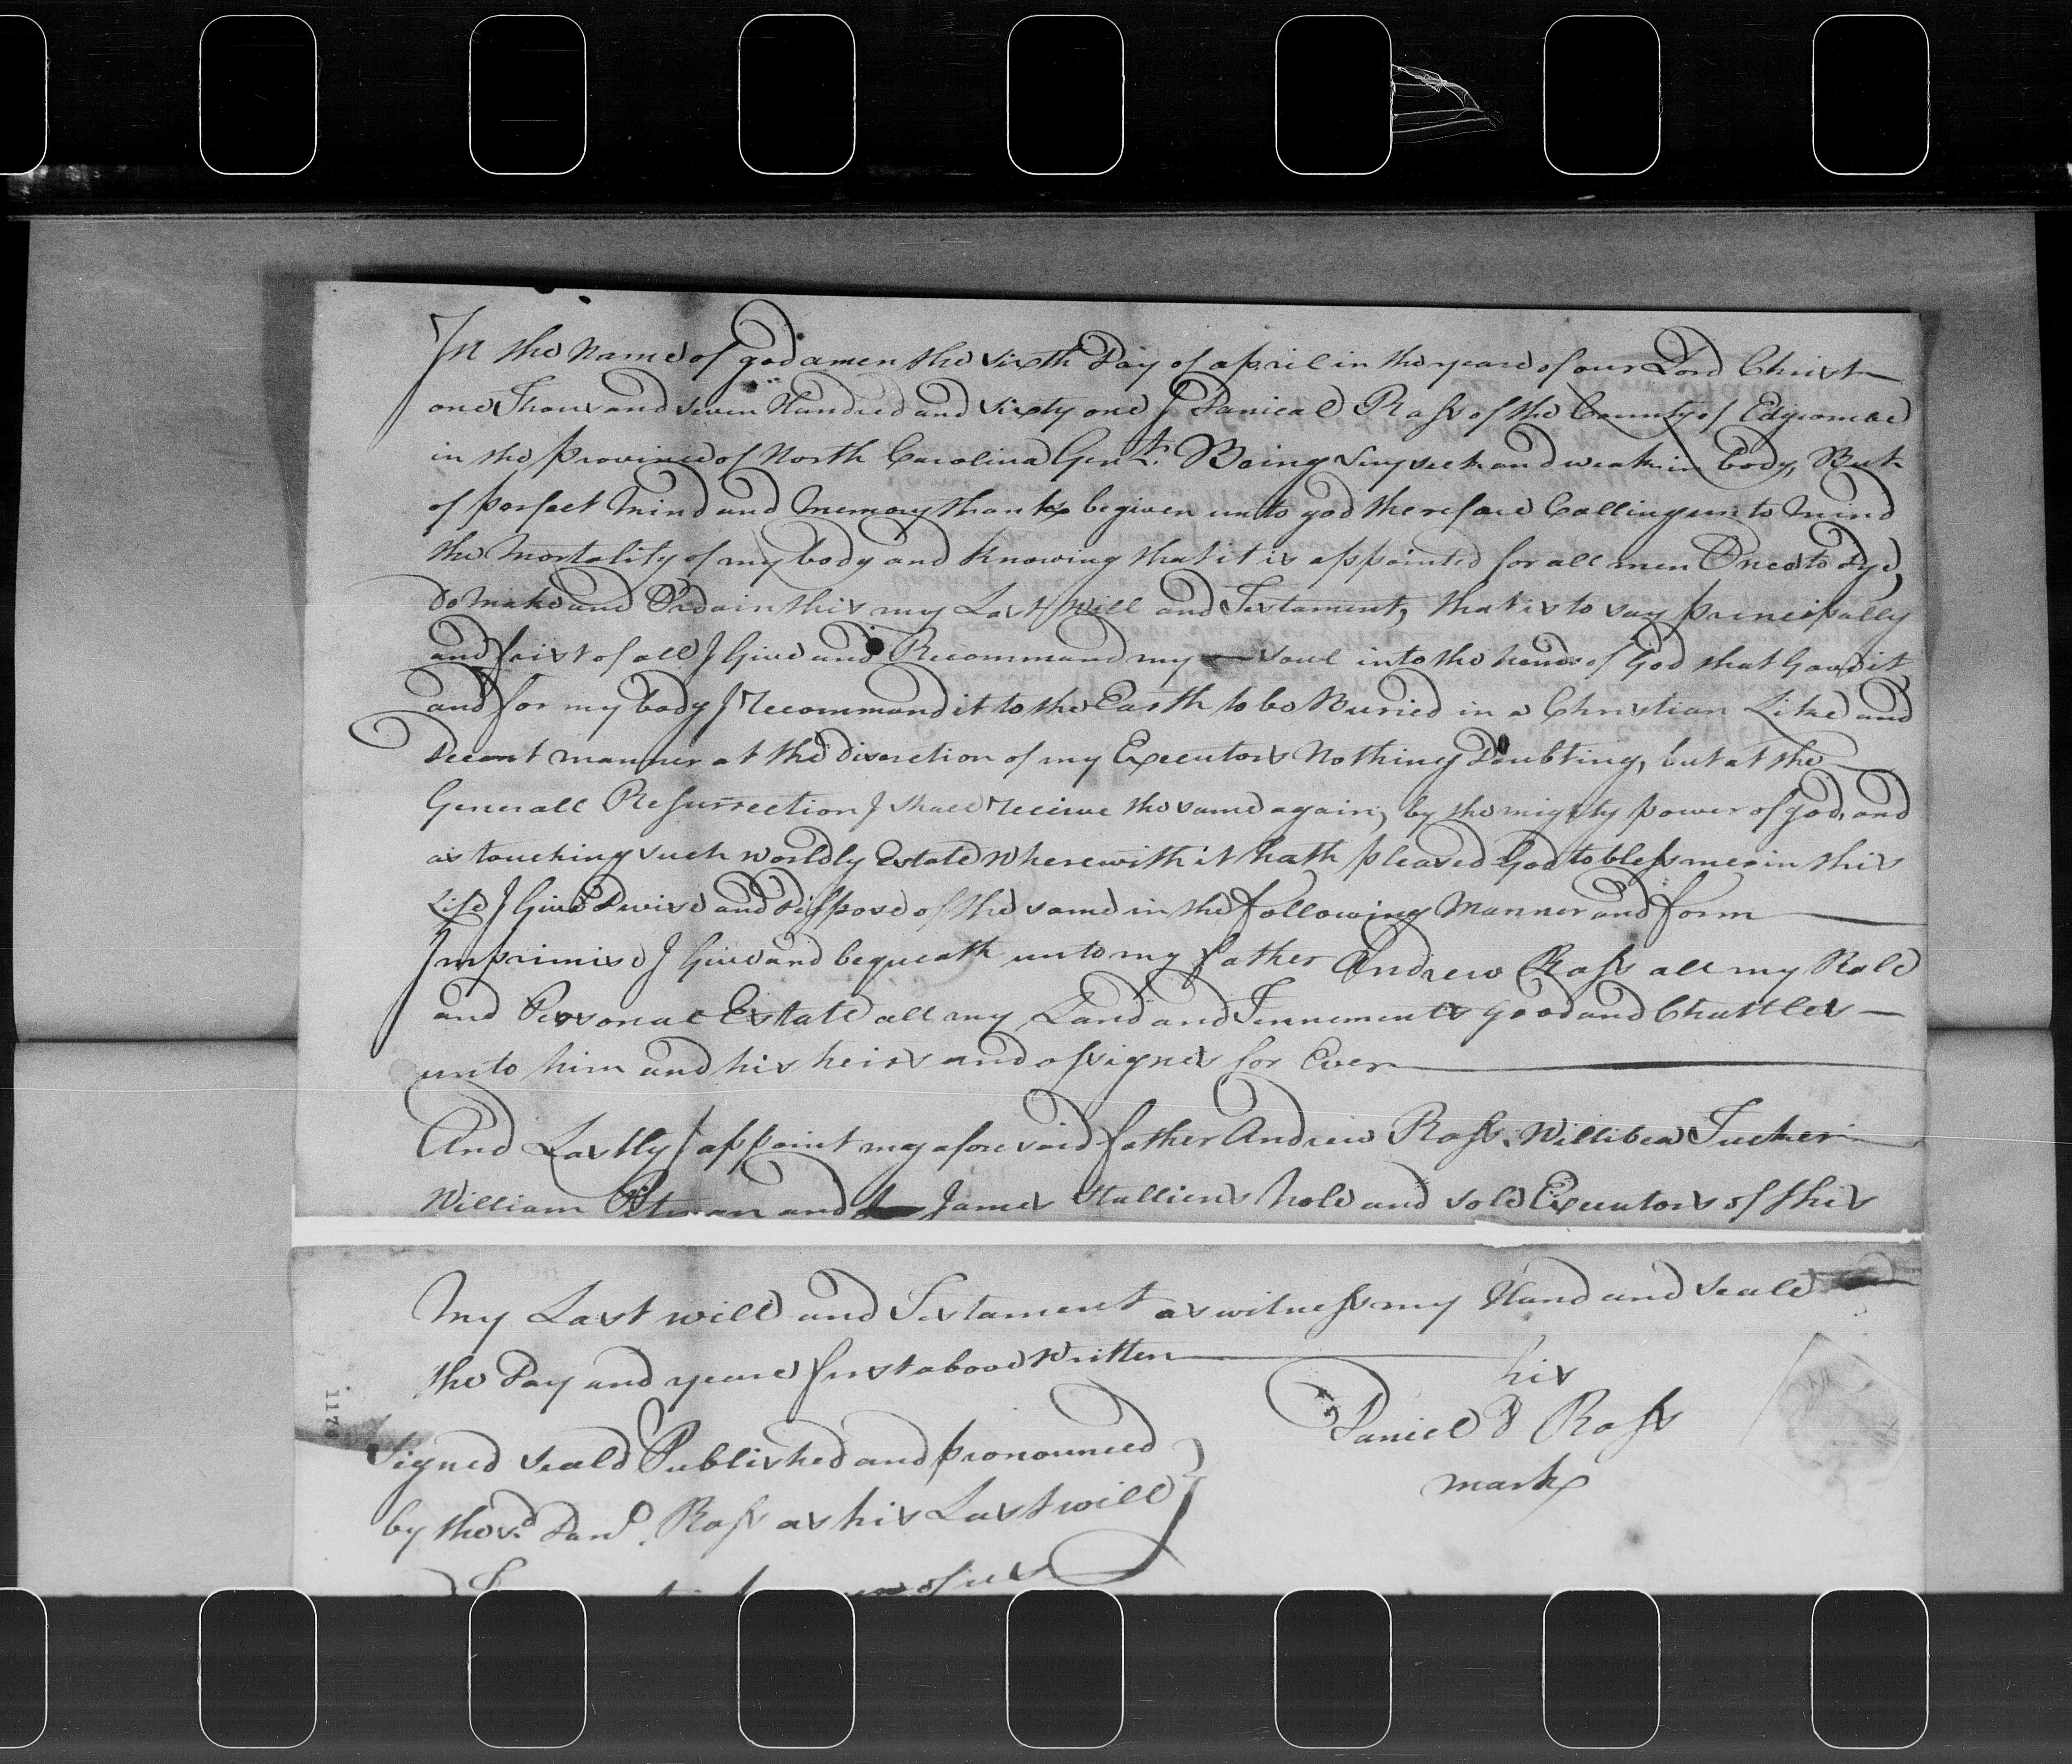 In the Name of god amen the sixth Day of april in the yeare of our Lord Christ
one Thousand seven Hundred and sixty one I Danieal Ross of the County of Edgcombe
in the province of North Carolina Gent. Being Very seck and weak in body, But
of perfect Mind and Memory thanks be given unto god therefore Calling unto Mind
the Mortality of my body and Knowing that it is appointed for all men Once to Dye,
Do make and Ordain this my Last Will and Testament, that is to say principally
and frist of all I Give and Recommand my soul into the hands of God that Gave it
and for my body I Recommand it to the Earth to be Buried in a Christian Like and
Decent manner at the discretion of my Executors Nothing Doubting, but at the
Generall Resurrection I shall receive the same again, by the mighty power of god, and
as touching such worldly Estate Wherewith it hath pleased God to bless me in this
Life I Give Devise and Disspose of the same in the following Manner and form
Imprimise I Give and bequeath unto my father Andrew Ross all my Rale
and Personal Estate all my Land and Tennements good and Chattles
unto him and his heirs and assignes for Ever
And Lastly I appoint my aforesaid father Andrew Ross, Willibea Tucker
William Pitman and James Stalliens hole and sole Executors of this
My Last will and Testament as witness my Hand and seale
the Day and yeare first above Written
his
Daniel D Ross
mark
Signed seald Published and pronounced
by the sd. Danl. Ross as his Last will
of us
117